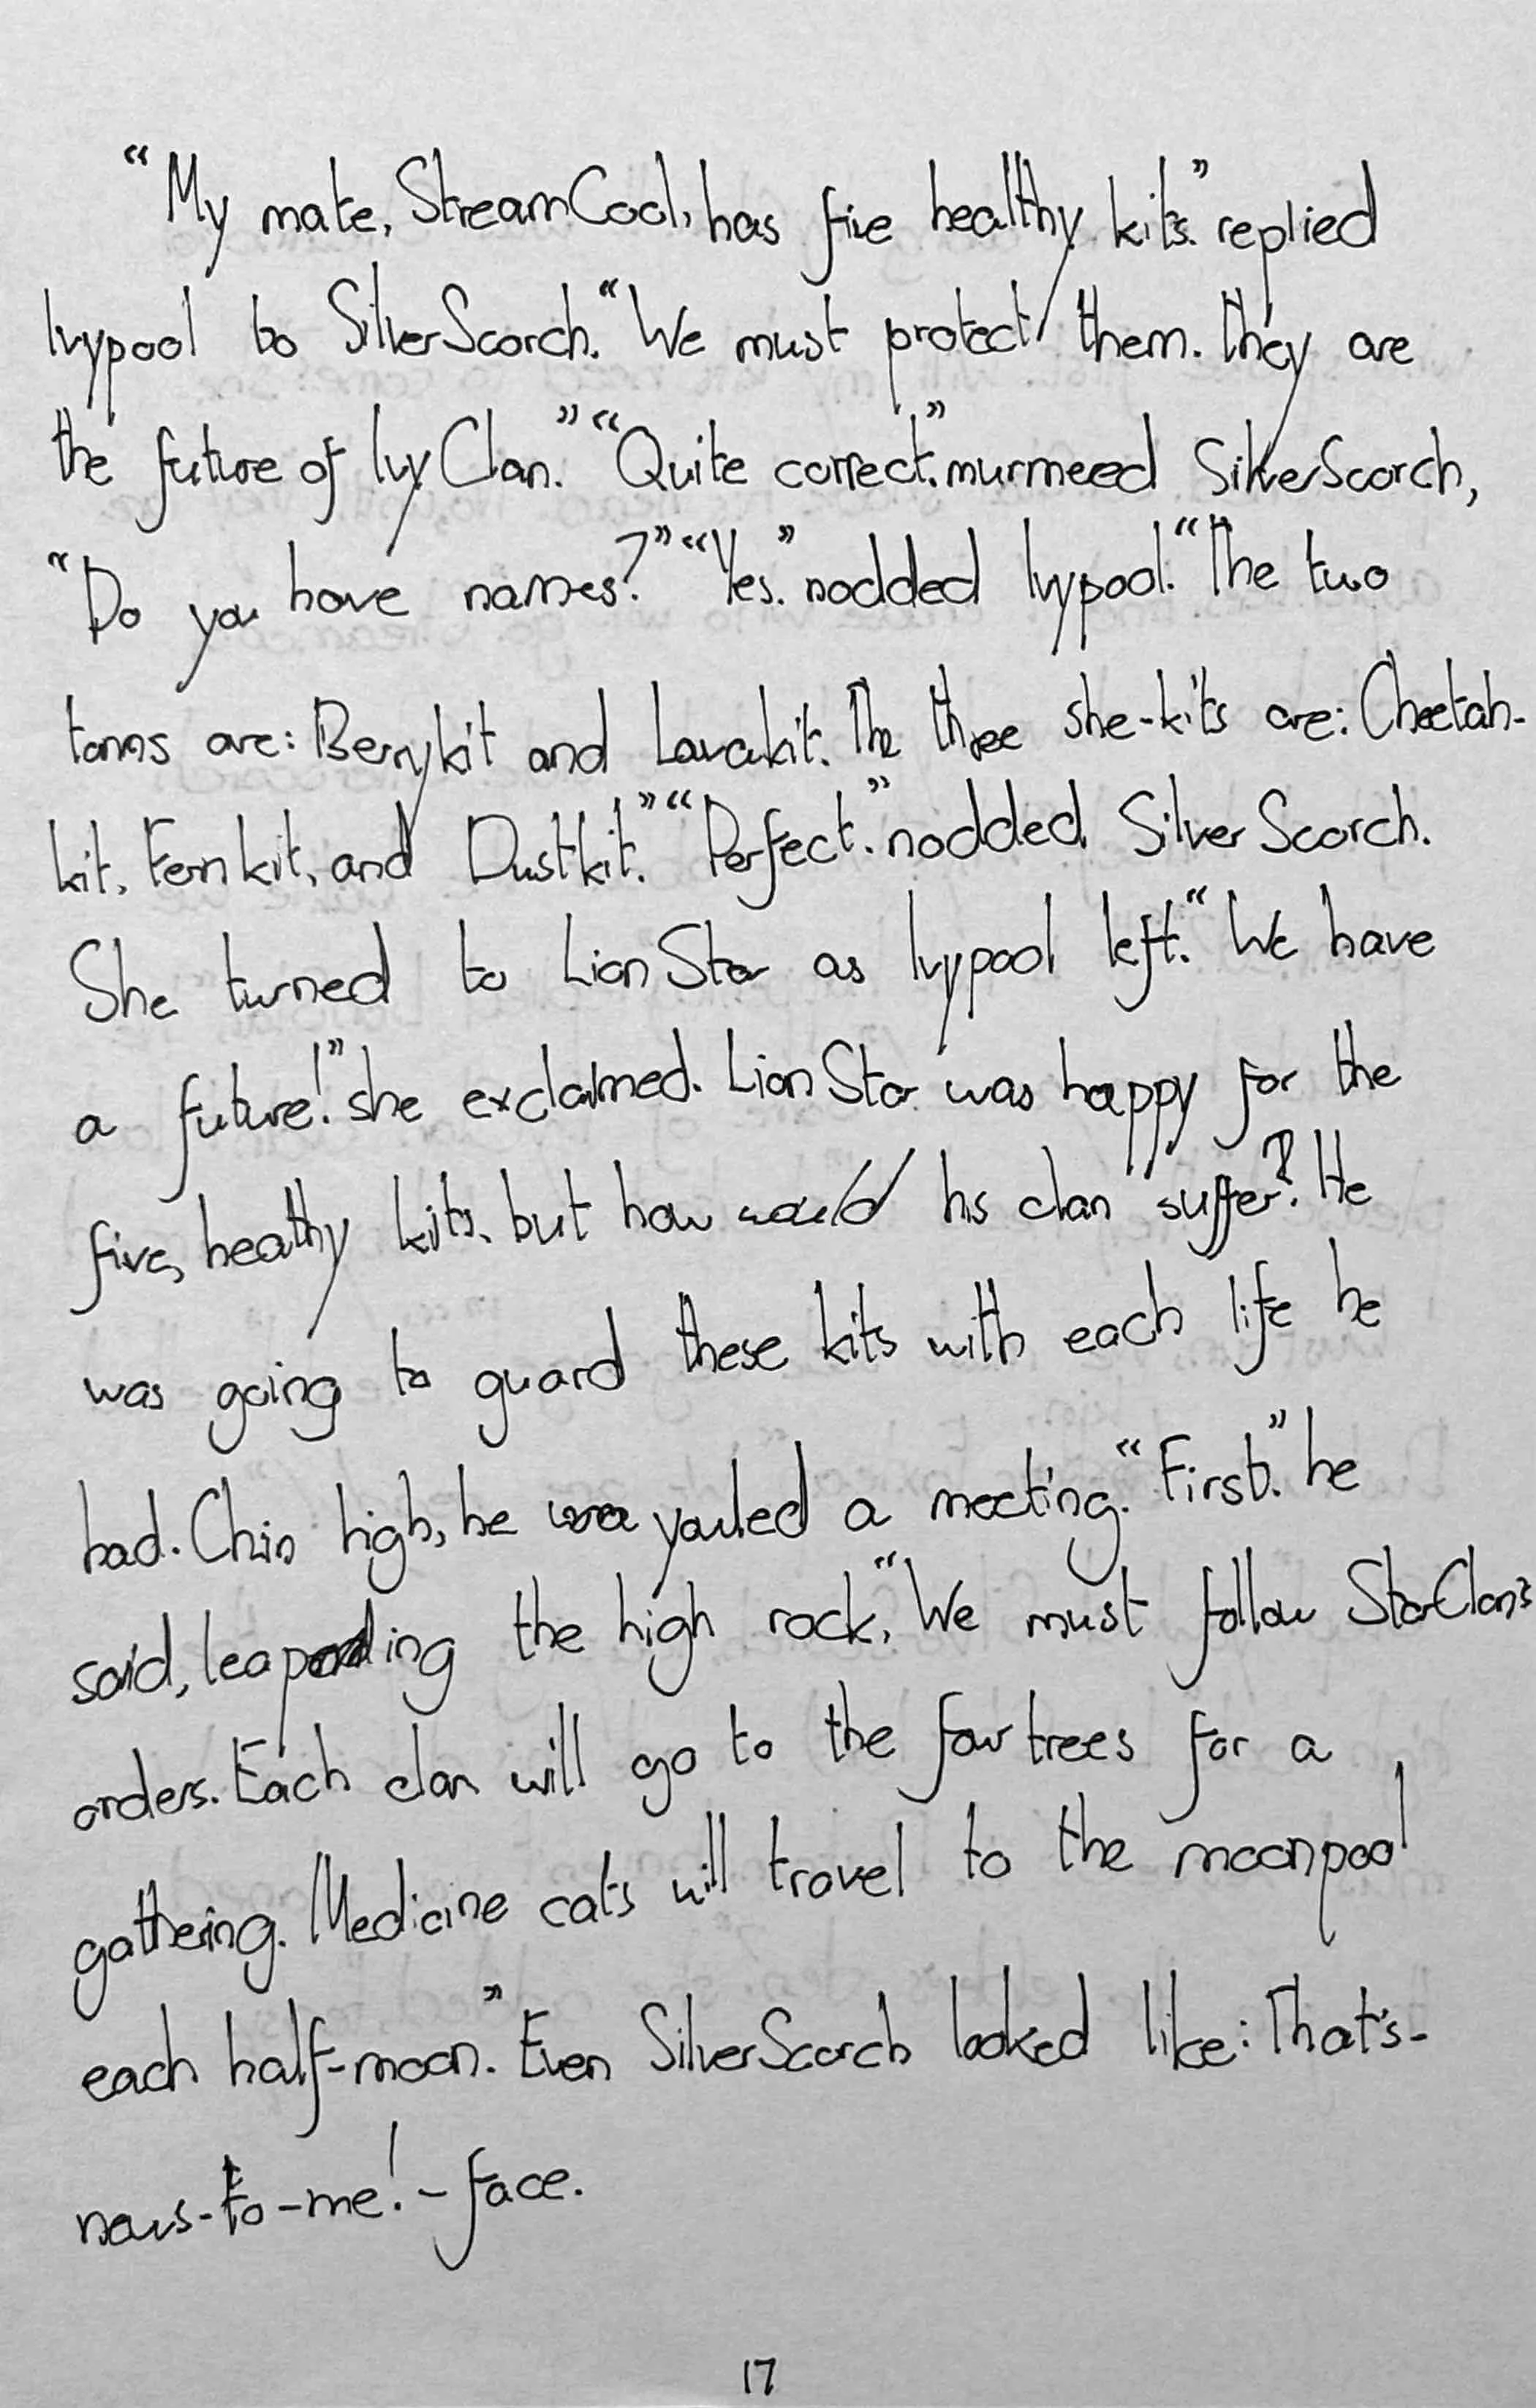 “My mate, StreamCool, has five healthy kits.” replied
Ivypool to SilverScorch. “We must protect them. They are
the future of IvyClan.” “Quite correct.” murmered SilverScorch,
“Do you have names?” “Yes.” nodded Ivypool. “The two
toms are: Berrykit and Lavakit. The three she-kits are: Cheetah-
kit, Fernkit, and Dustkit.” “Perfect.” nodded SilverScorch.
She turned to LionStar as Ivypool left. “We have
a future!” she exclaimed. LionStar was happy for the
five, healthy kits, but how would his clan suffer? He
was going to guard these kits with each life he
had. Chin high, he yowled a meeting. “First.” he
said, leaping the high rock, “We must follow StarClan's
orders. Each clan will go to the four trees for a
gathering. Medicine cats will travel to the moonpool
each half-moon.” Even SilverScorch looked like: That's-
news-to-me!-face.
17